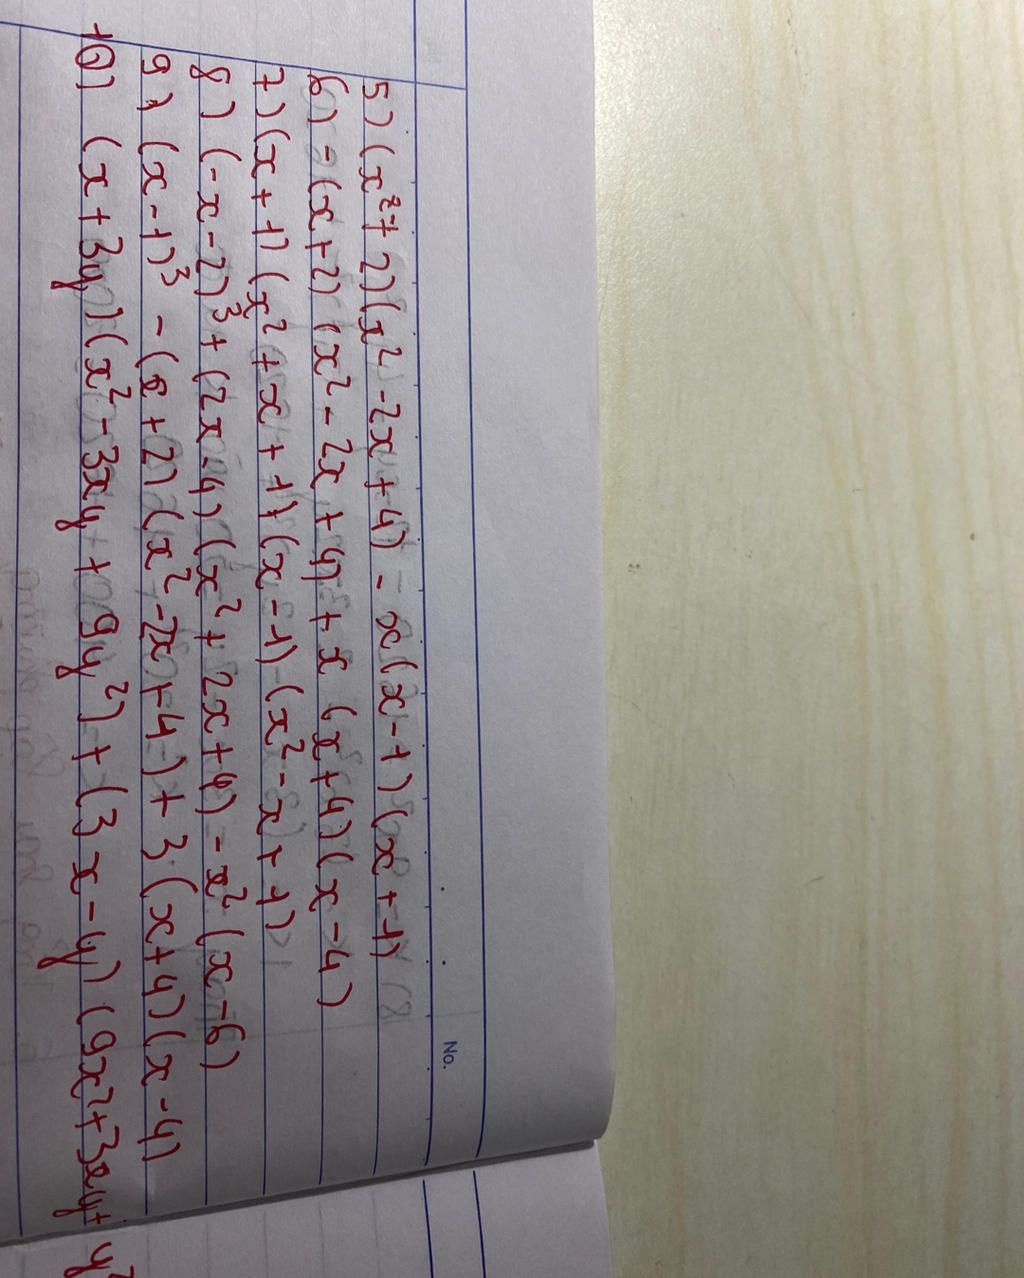 No.
5) (x²+2)(x²-2x+4) - x(x-1)(x+1)
6) -(x+2)(x²-2x+4)+x(x+4)(x-4)
7) (x+1)(x²+x+1)(x-1)-(x²-x+1)
8) (-x-2)³+(2x-4)(x²+2x+4)-x²(x-6)
9) (x-1)³-(x+2)(x²-2x+4)+3(x+4)(x-4)
10) (x+3y)(x²-3xy+9y²)+(3x-y)(9x²+3xy+y²